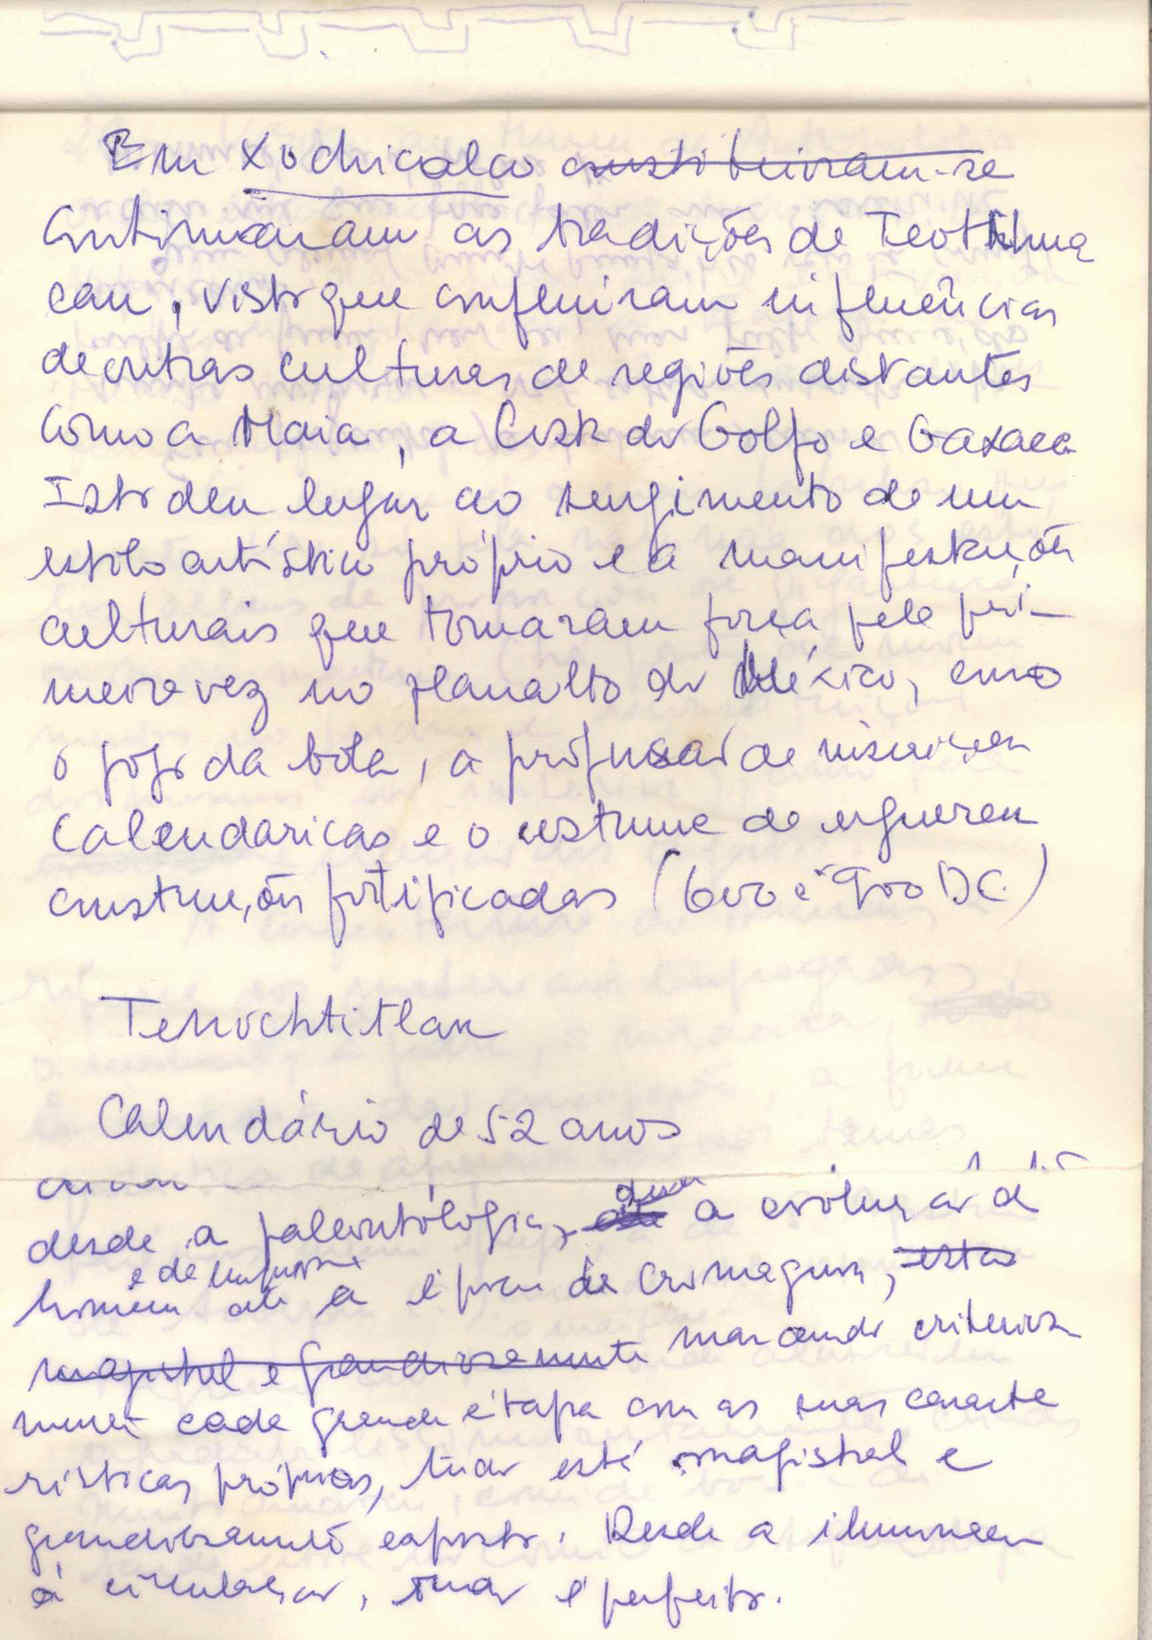 Em Xochicalco constituiram-se
Continuaram as tradições de Teotihua
can, visto que confluiram influências
de outras culturas de regiões distantes
como a Maia, a Costa do Golfo e Oaxaca
Isto deu lugar ao surgimento de um
estilo artístico próprio e a manifestações
culturais que tomaram força pela pri-
meira vez no planalto do México, como
o jogo da bola, a profusão de inscrições
Calendaricas e o costume de erguerem
construções fortificadas (600 e 900 DC)
Tenochtitlan
Calendário de 52 anos
desde a paleontologia, até a evolução d
e de
homem até a época de Cromagnon, estão
magistral e grandiosamente marcando criteriosa
mente cada grande etapa com as suas caracte
rísticas próprias, tudo está magistral e
grandiosamente exposto. Desde a iluminação
á circulação, tudo é perfeito.